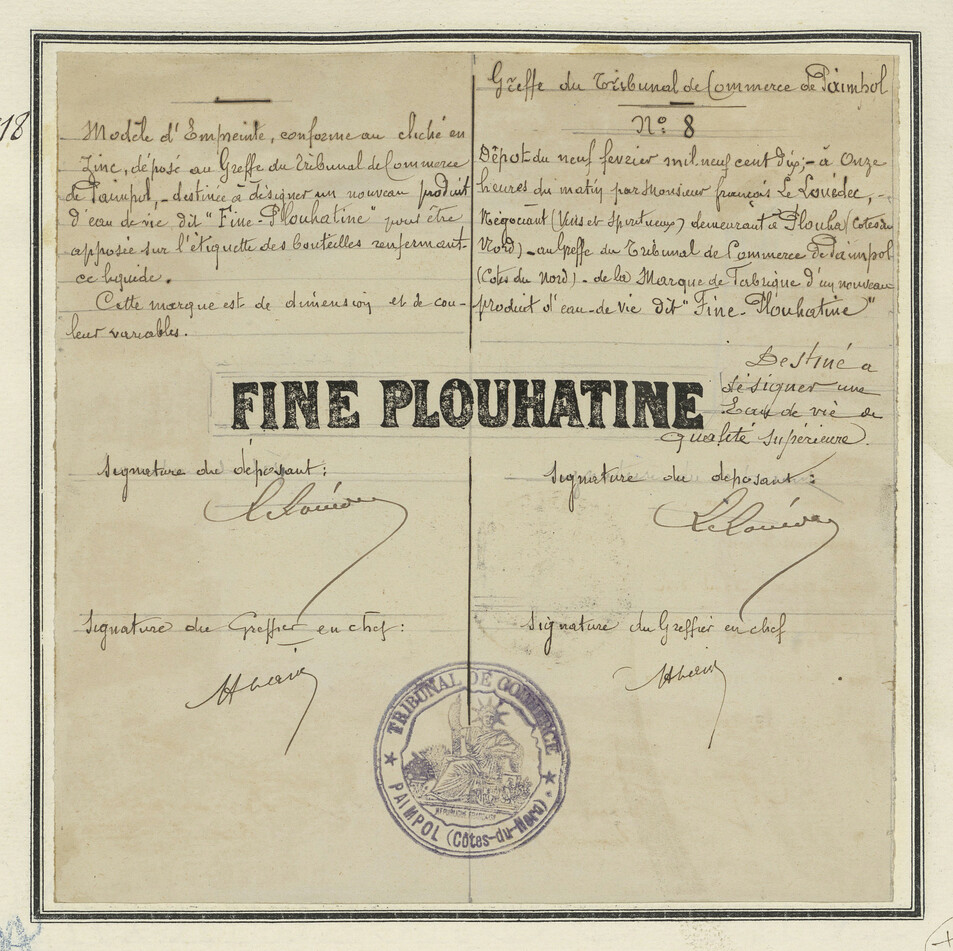 18
Modèle d'Empreinte, conforme au cliché en
Zinc, déposé au Greffe du Tribunal de Commerce
de Paimpol, - destinée à désigner un nouveau produit
d'eau de vie dit "Fine-Plouhatine" pour être
apposée sur l'étiquette des bouteilles renfermant
ce liquide.
Cette marque est de dimension et de cou-
leur variables.
Greffe du Tribunal de Commerce de Paimpol
No: 8
Dépot du neuf février mil neuf cent dix; - à Onze
heures du matin par Monsieur françois Le Louédec, -
Négociant (Vins et Spiritueux) demeurant à Plouha (Cotes du
Nord) - au Greffe du Tribunal de Commerce de Paimpol
(Cotes du Nord) - de la Marque de Fabrique d'un nouveau
produit d'eau-de-vie dit "Fine-Plouhatine"
Destiné a
désigner une
Eau de vie de
qualité supérieure.
FINE PLOUHATINE
Signature du déposant:
Le Louédec
Signature du déposant:
Le Louédec
Signature du Greffier en chef:
Signature du Greffier en chef
TRIBUNAL DE COMMERCE
RÉPUBLIQUE FRANÇAISE
PAIMPOL (Côtes-du-Nord)